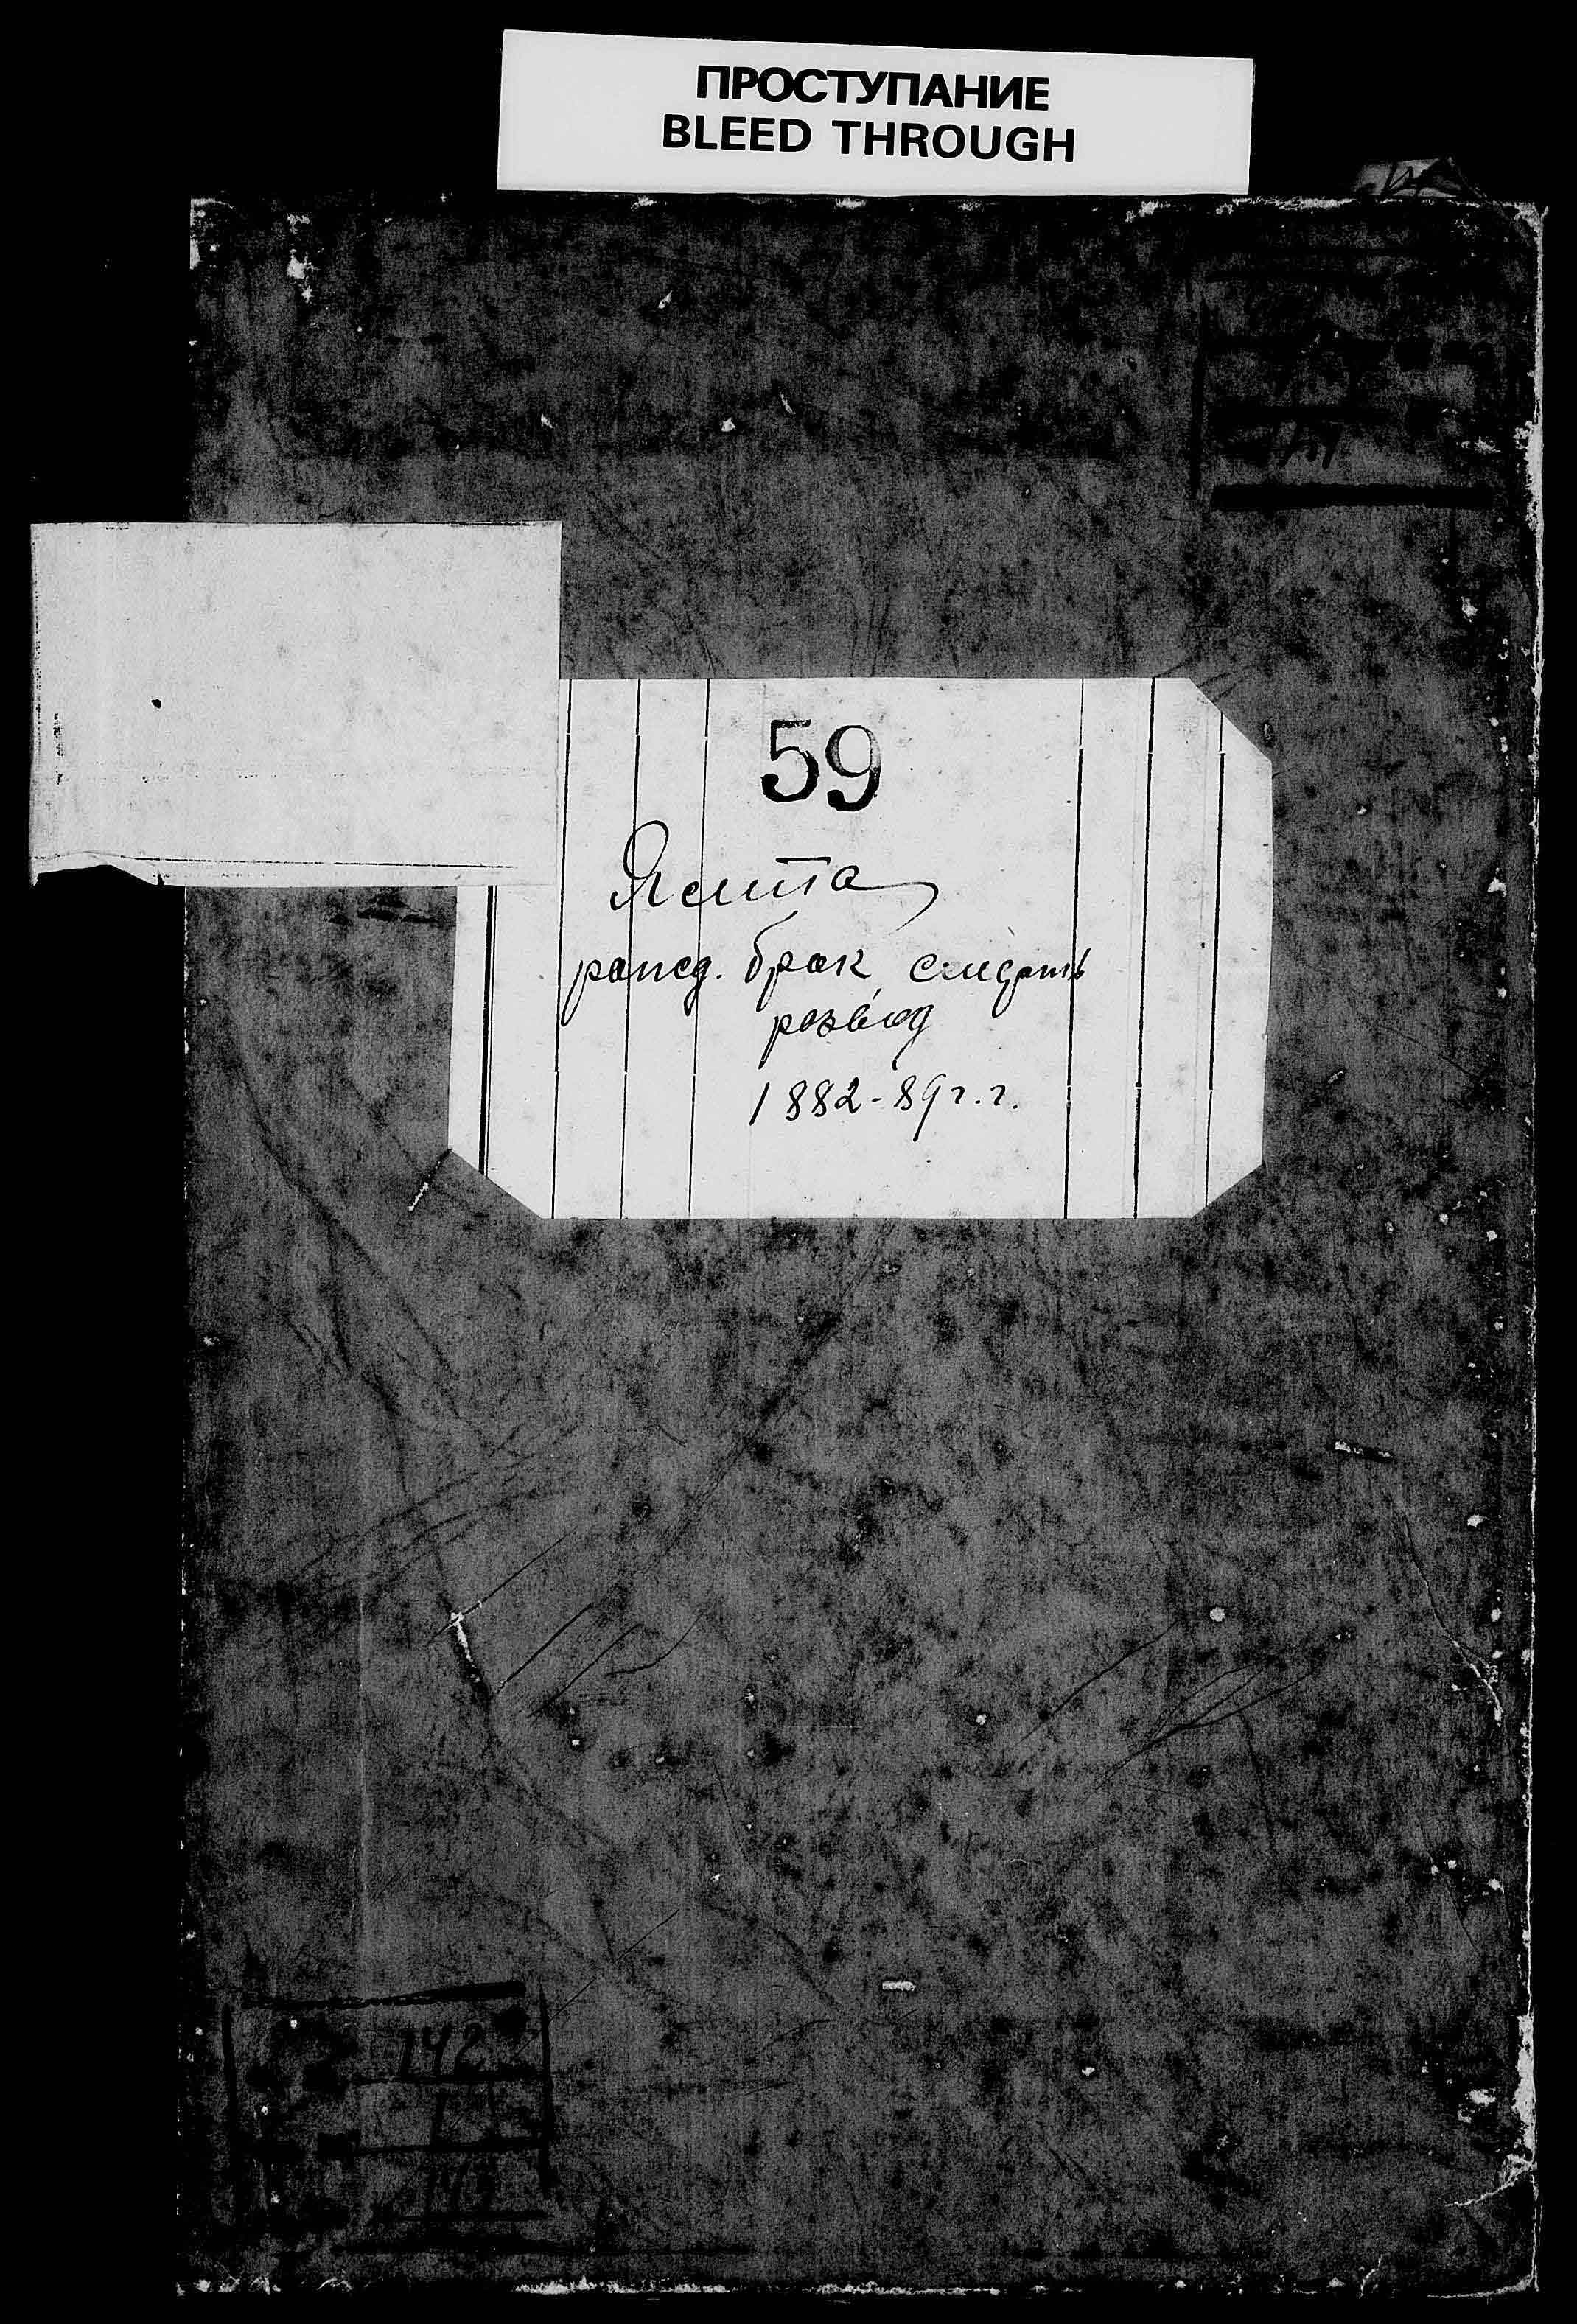 ПРОСТУПАНИЕ
BLEED THROUGH
59
Ялта
рожд. брак смерть
развод
1882-89 г.г.
142